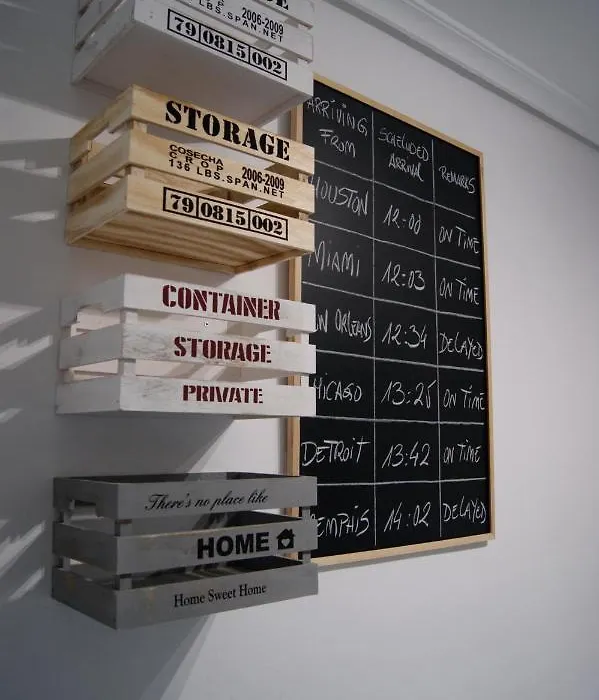 2006-2009
LBS.SPAN.NET
79 0815 002
STORAGE
COSECHA
CROP 2006-2009
136 LBS.SPAN.NET
79 0815 002
CONTAINER
STORAGE
PRIVATE
There's no place like
HOME
Home Sweet Home
ARRIVING
FROM
SCHELUDED
ARRIVAL
REMARKS
HOUSTON 12:00 ON TIME
MIAMI 12:03 ON TIME
ORLEANS 12:34 DELAYED
HICAGO 13:25 ON TIME
DETROIT 13:42 ON TIME
EMPHIS 14:02 DELAYED